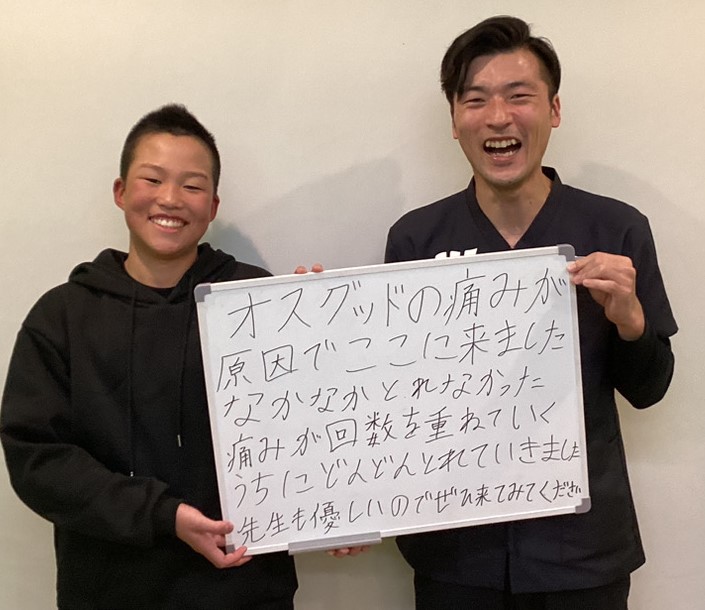 オスグッドの痛みが
原因でここに来ました
なかなかとれなかった
痛みが回数を重ねていく
うちにどんどんとれていきました
先生も優しいのでぜひ来てみてください